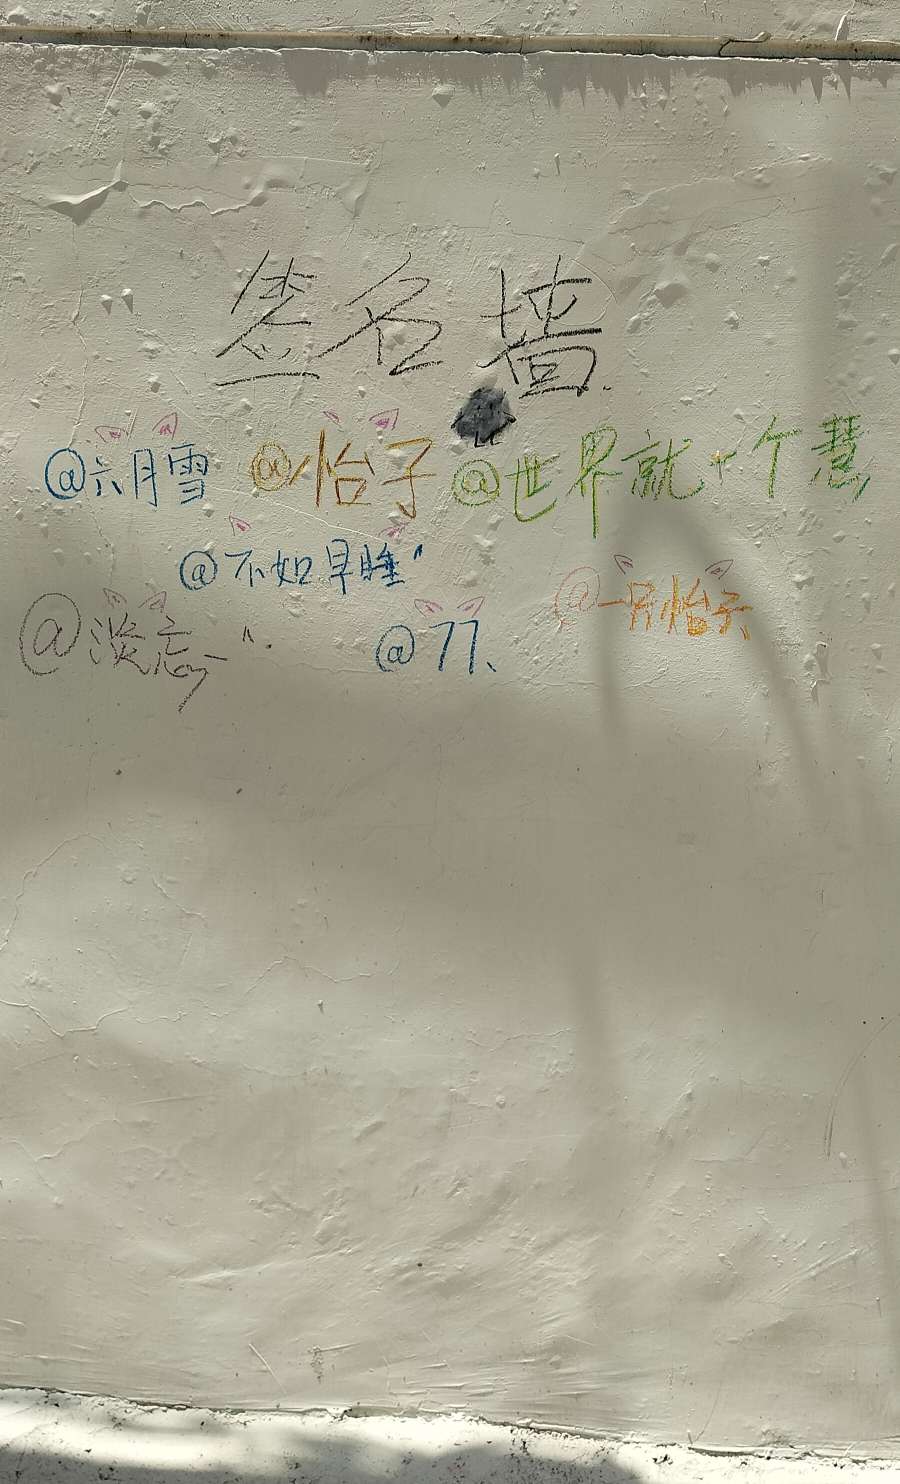 签名墙.
@六月雪 @怡子 @世界就一个慧
@不如早睡"
@淡忘~" @77、 @一只怡云、